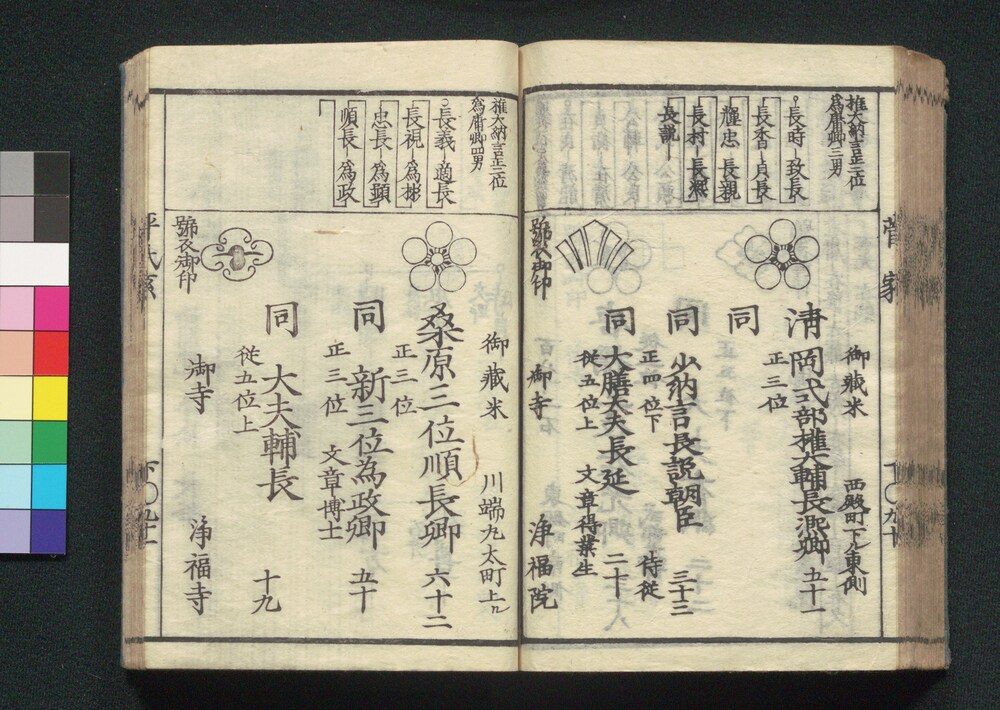 菅家
権大納言正二位
為庸卿三男
長時 致長
長香 貞長
輝忠 長親
長村 長凞
長説
御藏米 西殿町下ル東側
清岡式部権大輔長凞卿 五十一
正三位
同
同 少納言長説朝臣 三十三
正四位下 侍従
同 大膳大夫長延 二十
従五位上 文章得業生
御寺 浄福院
號衣御印
権大納言正二位
為庸卿四男
長義 適長
長視 為
忠長 為顕
順長 為政
御藏米 川端丸太町上ル
桑原三位順長卿 六十二
正三位
同 新三位為政卿 五十
正三位 文章博士
同 大夫輔長 十九
従五位上
御寺 浄福寺
號衣御印